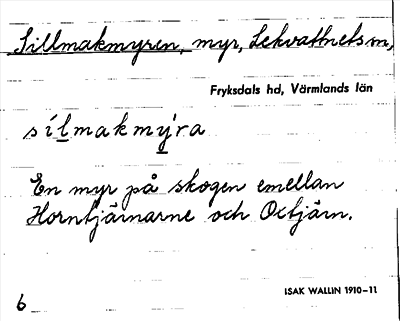 Sillmakmyren, myr, Lekvattnets sn,
Fryksdals hd, Värmlands län
sílmakmýra
En myr på skogen emellan
Horntjärnarne och Octjärn.
ISAK WALLIN 1910–11
6